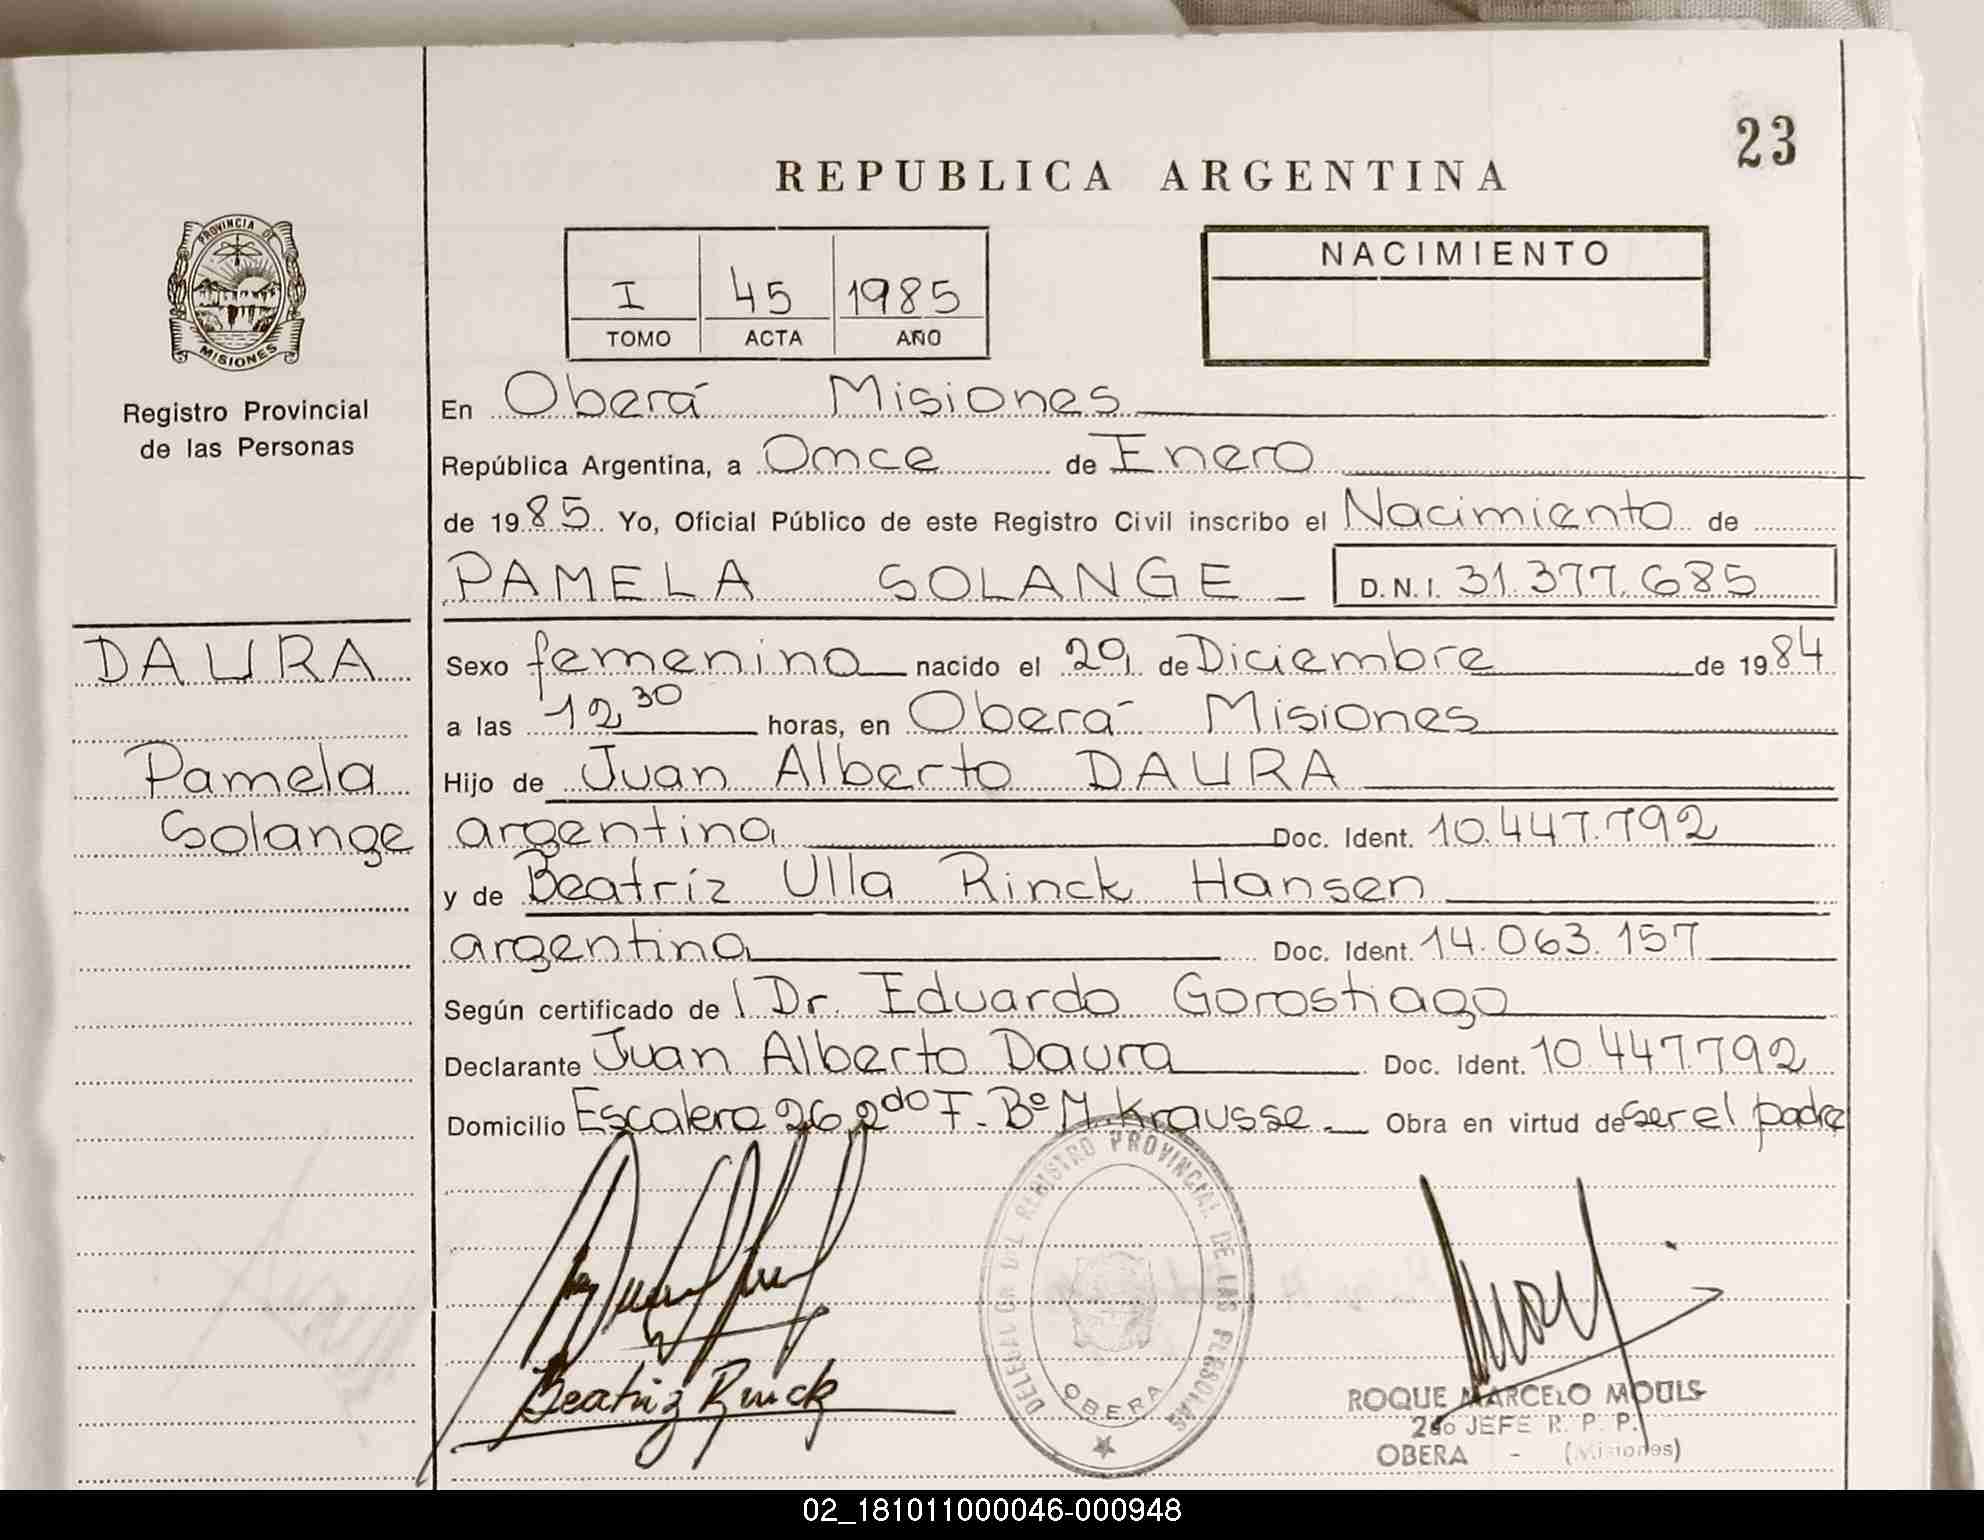 23
REPUBLICA ARGENTINA
PROVINCIA DE
MISIONES
Registro Provincial
de las Personas
I 45 1985
TOMO ACTA AÑO
NACIMIENTO
En Oberá Misiones
República Argentina, a Once de Enero
de 1985 Yo, Oficial Público de este Registro Civil inscribo el Nacimiento de
PAMELA SOLANGE D.N.I. 31.377.685
DAURA
Pamela
Solange
Sexo femenino nacido el 29 de Diciembre de 1984
a las 12,30 horas, en Oberá Misiones
Hijo de Juan Alberto DAURA
argentina Doc. Ident. 10.447.792
y de Beatríz Ulla Rinck Hansen
argentina Doc. Ident. 14.063.157
Según certificado de l Dr. Eduardo Gorostiago
Declarante Juan Alberto Daura Doc. Ident. 10.447.792
Domicilio Escalera 26 2do F. Bº M. Krausse Obra en virtud de ser el padre
Beatriz Rinck
DELEGACION DEL REGISTRO PROVINCIAL DE LAS PERSONAS
OBERA
ROQUE MARCELO MOULS
2do JEFE R. P. P.
OBERA - (Misiones)
02_181011000046-000948